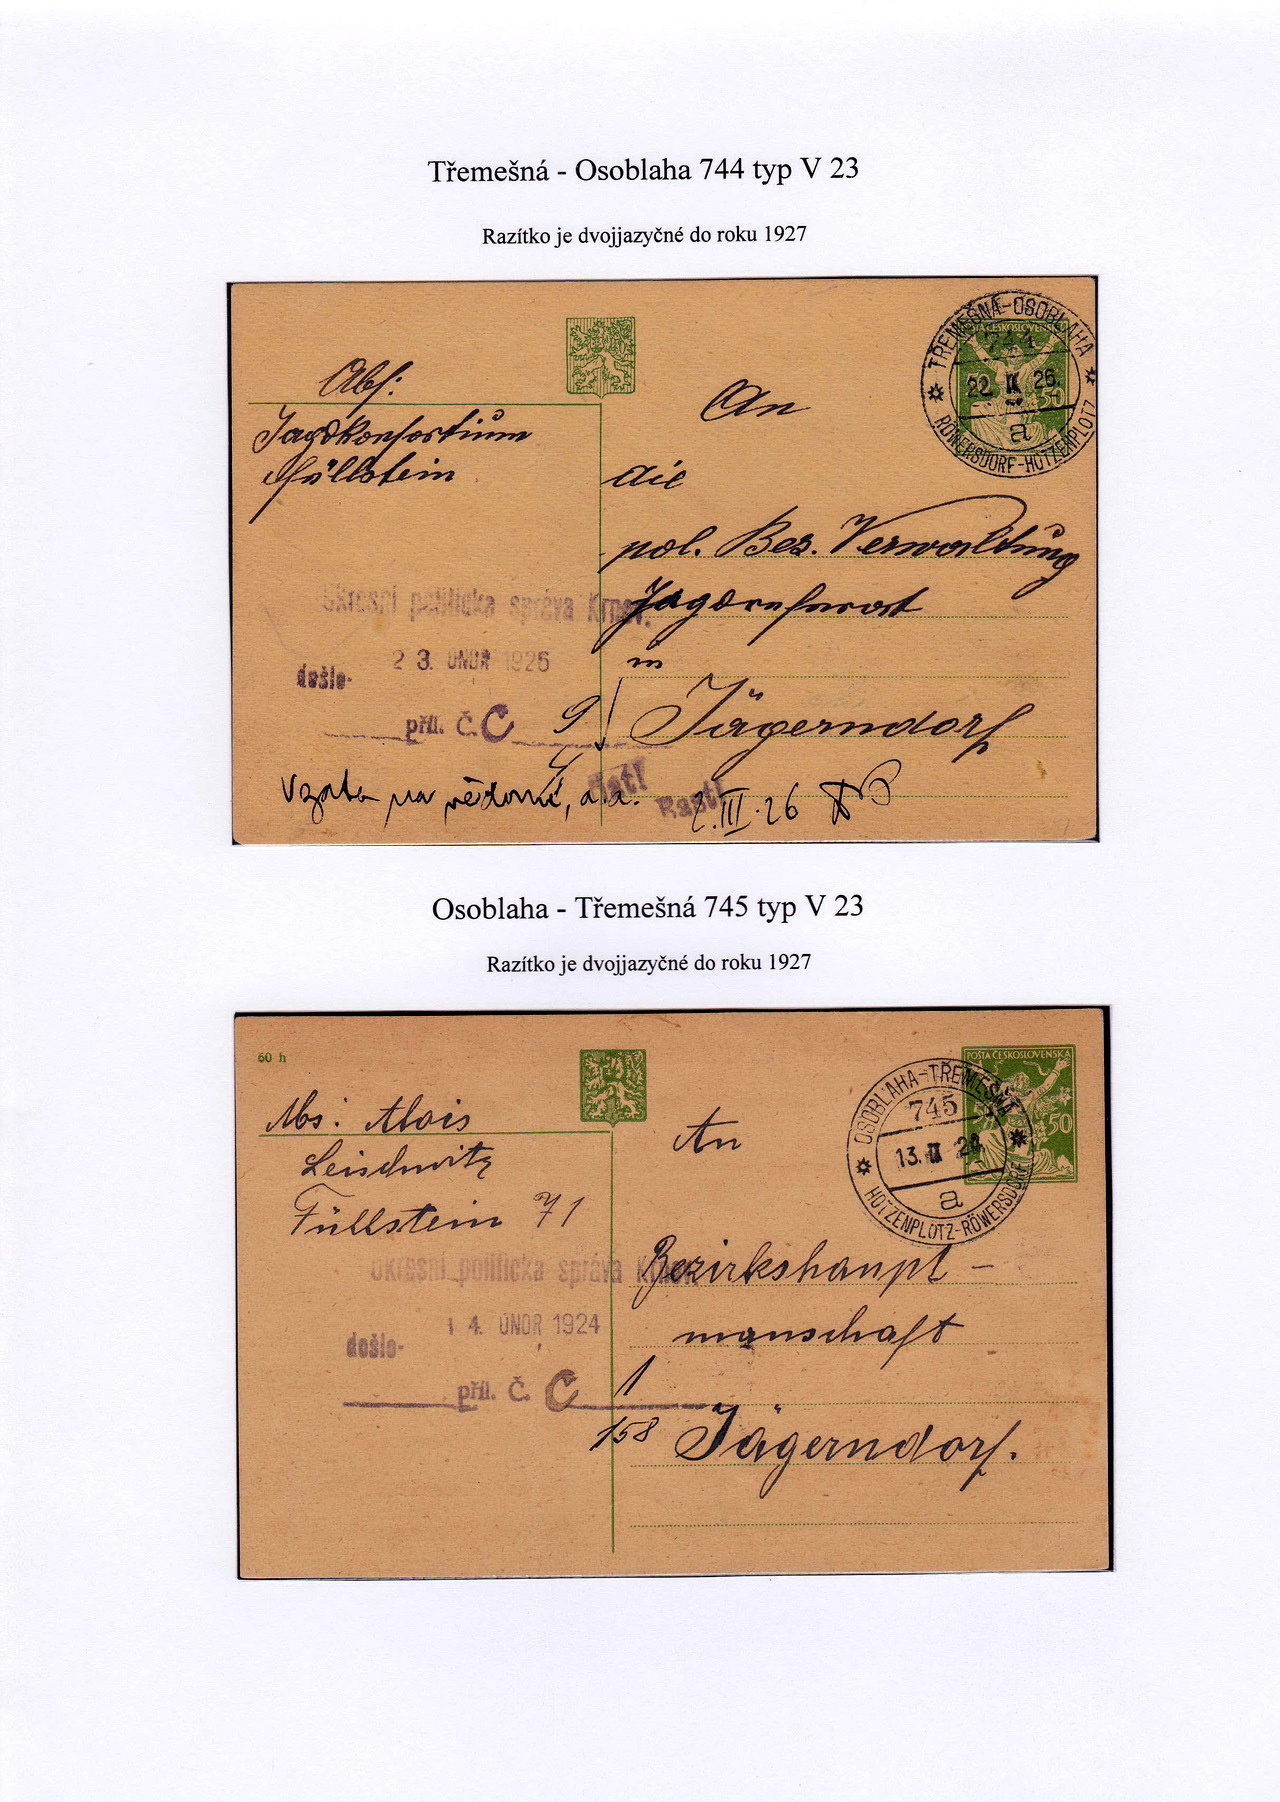 Třemešná - Osoblaha 744 typ V 23
Razítko je dvojjazyčné do roku 1927
TŘEMEŠNÁ-OSOBLAHA
POŠTA ČESKOSLOVENSKÁ
744
22. II 26.
50
a
RÖWERSDORF-HOTZENPLOTZ
Abs:
Jagdkonsortium
Füllstein
An
die
pol. Bez. Verwaltung
Jagdreferat
in
Jägerndorf
Okresní politická správa Krnov.
23. ÚNOR 1926
došlo-
příl. Č. C
9
Vzato na vědomí, a.a.
2.III.26
Osoblaha - Třemešná 745 typ V 23
Razítko je dvojjazyčné do roku 1927
60 h
POŠTA ČESKOSLOVENSKÁ
50
OSOBLAHA-TŘEMEŠNÁ
745
13. II 24.
a
HOTZENPLOTZ-RÖWERSDORF
Abs: Alois
Leischwitz
Füllstein 71
An
Bezirkshaupt-
manschaft
Jägerndorf.
Okresní politická správa Krnov.
14. ÚNOR 1924
došlo-
příl. Č. C
1
158